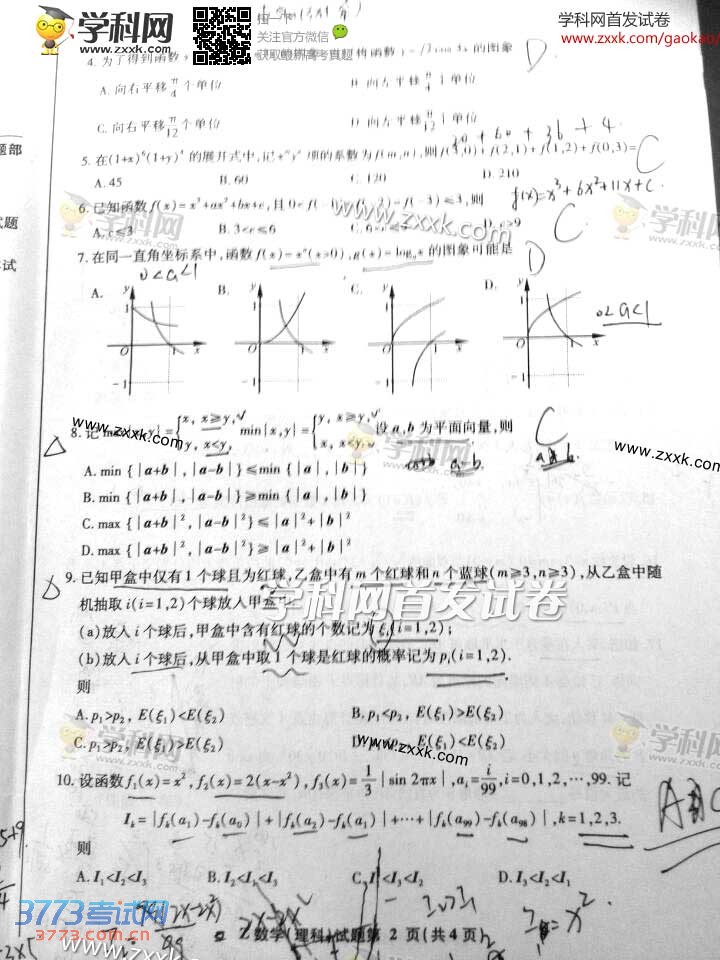 学科网首发试卷
www.zxxk.com
扫一下
关注官方微信
获取最新高考真题
学科网首发试卷
www.zxxk.com/gaokao/
4. 为了得到函数 的图象
A. 向右平移π/4个单位 B. 向左平移π/4个单位
C. 向右平移π/12个单位 D. 向左平移π/12个单位
D
20 + 60 + 36 + 4
题部
5. 在(1+x)⁶(1+y)⁴的展开式中,记xᵐyⁿ项的系数为f(m,n),则f(3,0)+f(2,1)+f(1,2)+f(0,3)=
C
A. 45 B. 60 C. 120 D. 210
6. 已知函数f(x)=x³+ax²+bx+c,且0<f(-1)=f(-2)=f(-3)≤3,则
f(x)=x³+6x²+11x+c.
A. c≤3 B. 3<c≤6 C. 6<c≤9 D. c>9
C
学科网
www.zxxk.com
7. 在同一直角坐标系中,函数f(x)=xᵃ(x>0),g(x)=logₐx的图象可能是
D
0<a<1
A. B. C. D.
y 1 O 1 x -1
y 1 O 1 x -1
y 1 O 1 x -1
y 1 O 1 x -1
0<a<1
8. 记max{x,y}={x, x≥y, y, x<y, min{x,y}={y, x≥y, x, x<y, 设a,b为平面向量,则
C
www.zxxk.com
A. min{|a+b|,|a-b|}≤min{|a|,|b|}
B. min{|a+b|,|a-b|}≥min{|a|,|b|}
C. max{|a+b|²,|a-b|²}≤|a|²+|b|²
D. max{|a+b|²,|a-b|²}≥|a|²+|b|²
9. 已知甲盒中仅有1个球且为红球,乙盒中有m个红球和n个蓝球(m≥3,n≥3),从乙盒中随
机抽取i(i=1,2)个球放入甲盒中.
学科网首发试卷
(a)放入i个球后,甲盒中含有红球的个数记为ξᵢ(i=1,2);
(b)放入i个球后,从甲盒中取1个球是红球的概率记为pᵢ(i=1,2).
则
A. p₁>p₂, E(ξ₁)<E(ξ₂) B. p₁<p₂, E(ξ₁)>E(ξ₂)
C. p₁>p₂, E(ξ₁)>E(ξ₂) D. p₁<p₂, E(ξ₁)<E(ξ₂)
10. 设函数f₁(x)=x², f₂(x)=2(x-x²), f₃(x)=1/3|sin 2πx|, aᵢ=i/99, i=0,1,2,⋯,99. 记
Iₖ=|fₖ(a₁)-fₖ(a₀)|+|fₖ(a₂)-fₖ(a₁)|+⋯+|fₖ(a₉₉)-fₖ(a₉₈)|,k=1,2,3.
则
A. I₁<I₂<I₃ B. I₂<I₁<I₃ C. I₁<I₃<I₂ D. I₃<I₂<I₁
数学(理科)试题第 2 页(共4页)
3773考试网
www.3773.com.cn
www.zxxk.com